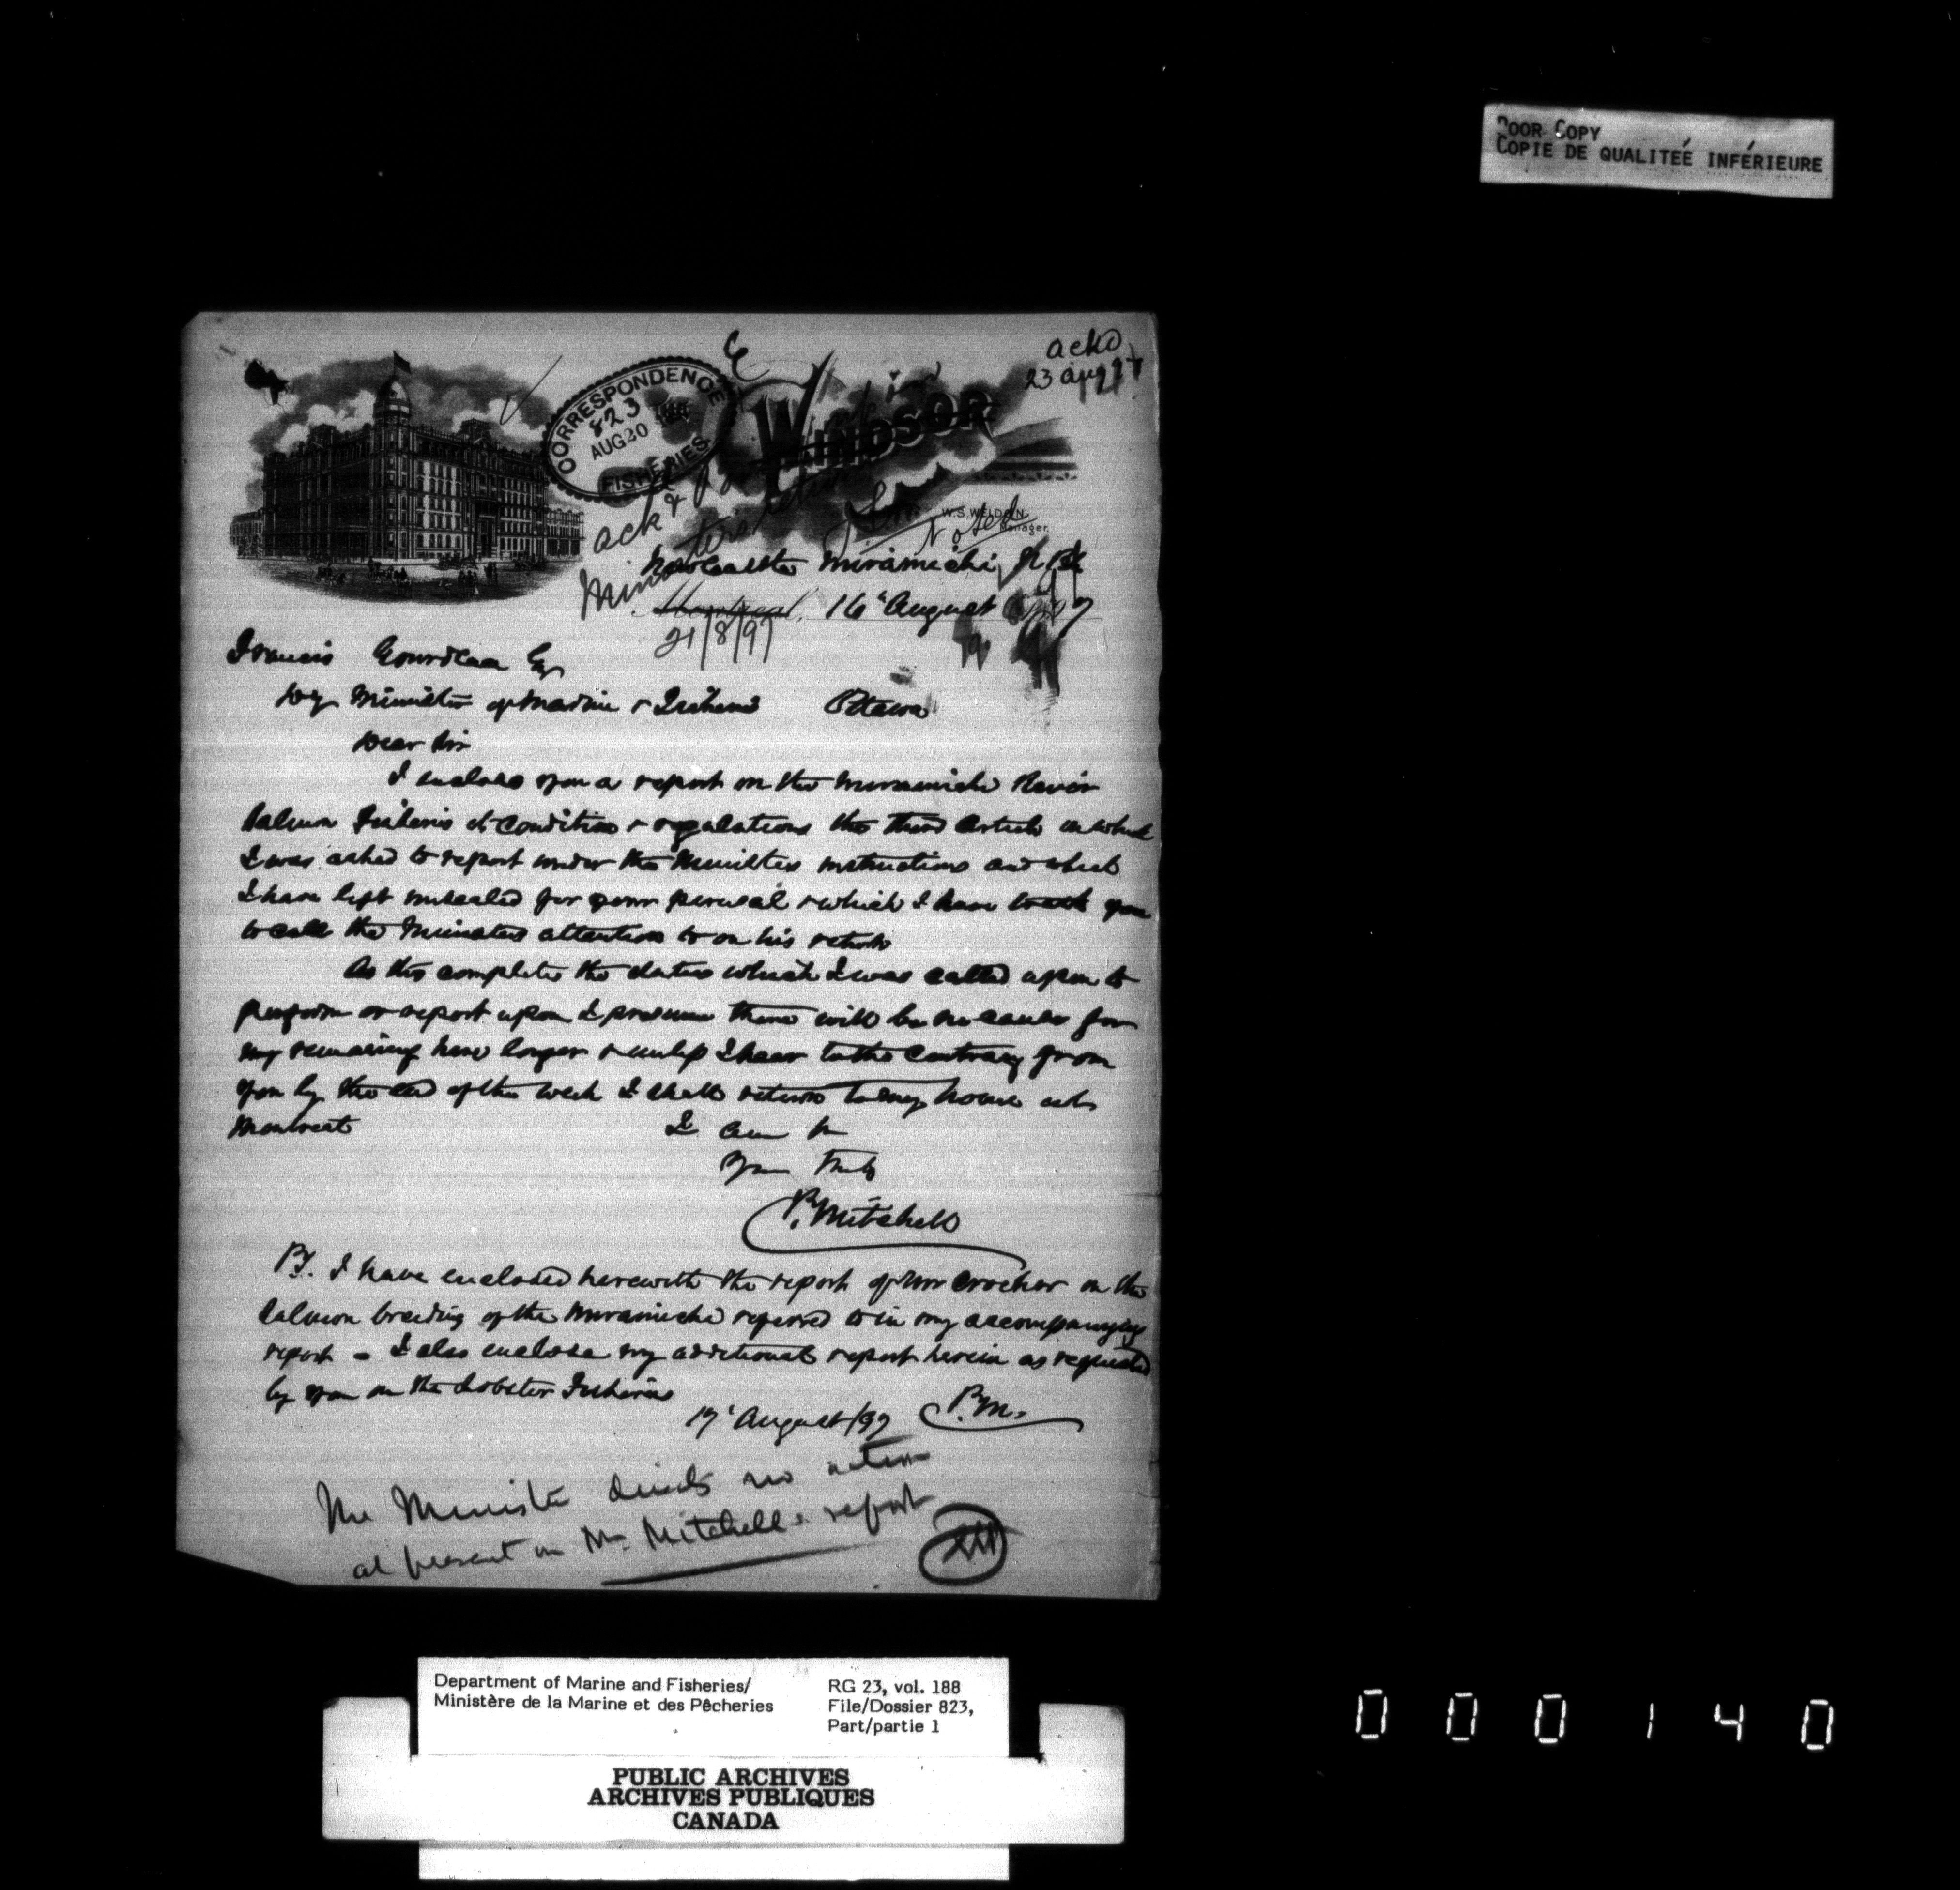 POOR COPY
COPIE DE QUALITEÉ INFÉRIEURE
ackd
23 Aug 97
CORRESPONDENCE
823
AUG 20
FISHERIES
WINDSOR
W.S. WELDON,
Manager.
Noted
ack &
Newcastle Miramichi N B
Montreal, 16' August 1897
21/8/97
Francis Gourdeau Esq
Dy Minister of Marine & Fisheries Ottawa
Dear Sir
I enclose you a report on the Miramichi River
Salmon Fisheries its condition & regulations the third article on which
I was asked to report under the Ministers instructions and which
I have left unsealed for your perusal & which I have to ask you
to call the Ministers attention to on his return
As this completes the duties which I was called upon to
perform or report upon I presume there will be no cause for
my remaining here longer & unless I hear to the contrary from
you by the end of the week I shall return to my home at
Montreal
I am
Yours Truly
P. Mitchell
PS. I have enclosed herewith the report of Mr Crocker on the
Salmon breeding of the Miramichi referred to in my accompanying
report - I also enclose my additional report herein as requested
by you on the Lobster Fisheries
17' August /97 P.M.
The Minister directs no action
at present on Mr. Mitchell's report
Department of Marine and Fisheries/
Ministère de la Marine et des Pêcheries
RG 23, vol. 188
File/Dossier 823,
Part/partie 1
PUBLIC ARCHIVES
ARCHIVES PUBLIQUES
CANADA
000140